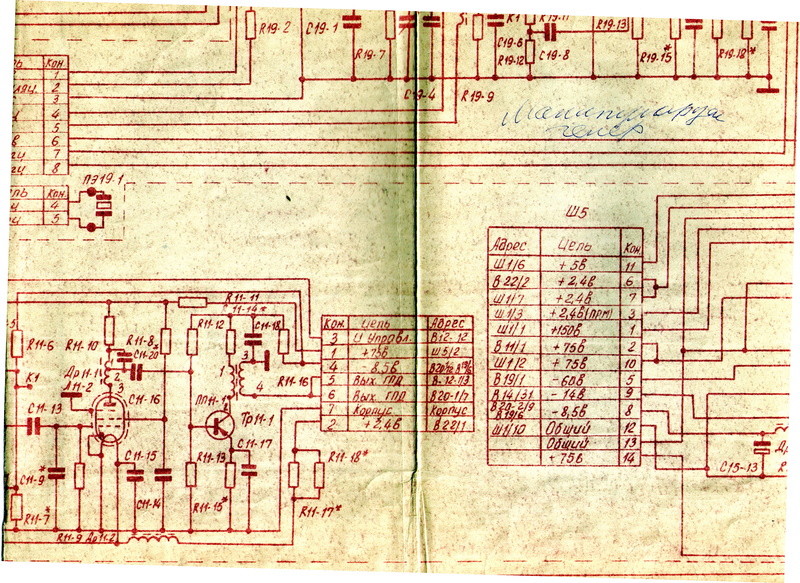 R19-2
C19-1
R19-7
C19-4
R19-9
K1
C19-6
R19-12
C19-8
R19-11
R19-13
R19-15*
R19-18*
Кон.
1
2
3
4
5
6
7
8
ПЭ19-1
Кон.
4
5
Ш5
Адрес Цепь Кон
Ш1/6 +5в 11
В22/2 +2,4в 6
Ш1/7 +2,4в 7
Ш1/3 +2,4в(ПРМ) 3
Ш1/1 +150в 1
В11/1 +75в 2
Ш1/2 +75в 10
В19/1 -60в 5
В14/31 -14в 9
В20-2/9
В19/6 -8,5в 8
Ш1/10 Общий 12
Общий 13
-75в 14
C15-13
R11-11
R11-6
R11-10
R11-8*
C11-20
R11-12
11-14*
C11-18
Др11-1
К1
Л11-2
C11-13
C11-16
1
2
3
1
3
4
R11-16
ПП11-1
Тр11-1
C11-17
C11-9*
C11-15
C11-14
R11-13
R11-15*
R11-18*
R11-17*
R11-7*
R11-9
Др11-2
Кон. Цепь Адрес
3 U Управл. В12-12
1 +75в Ш5/2
4 -8,5в
5 Вых ГПД В-12-П3
6 Вых ГПД В20-1/7
7 Корпус Корпус
2 +2,4в В22/1